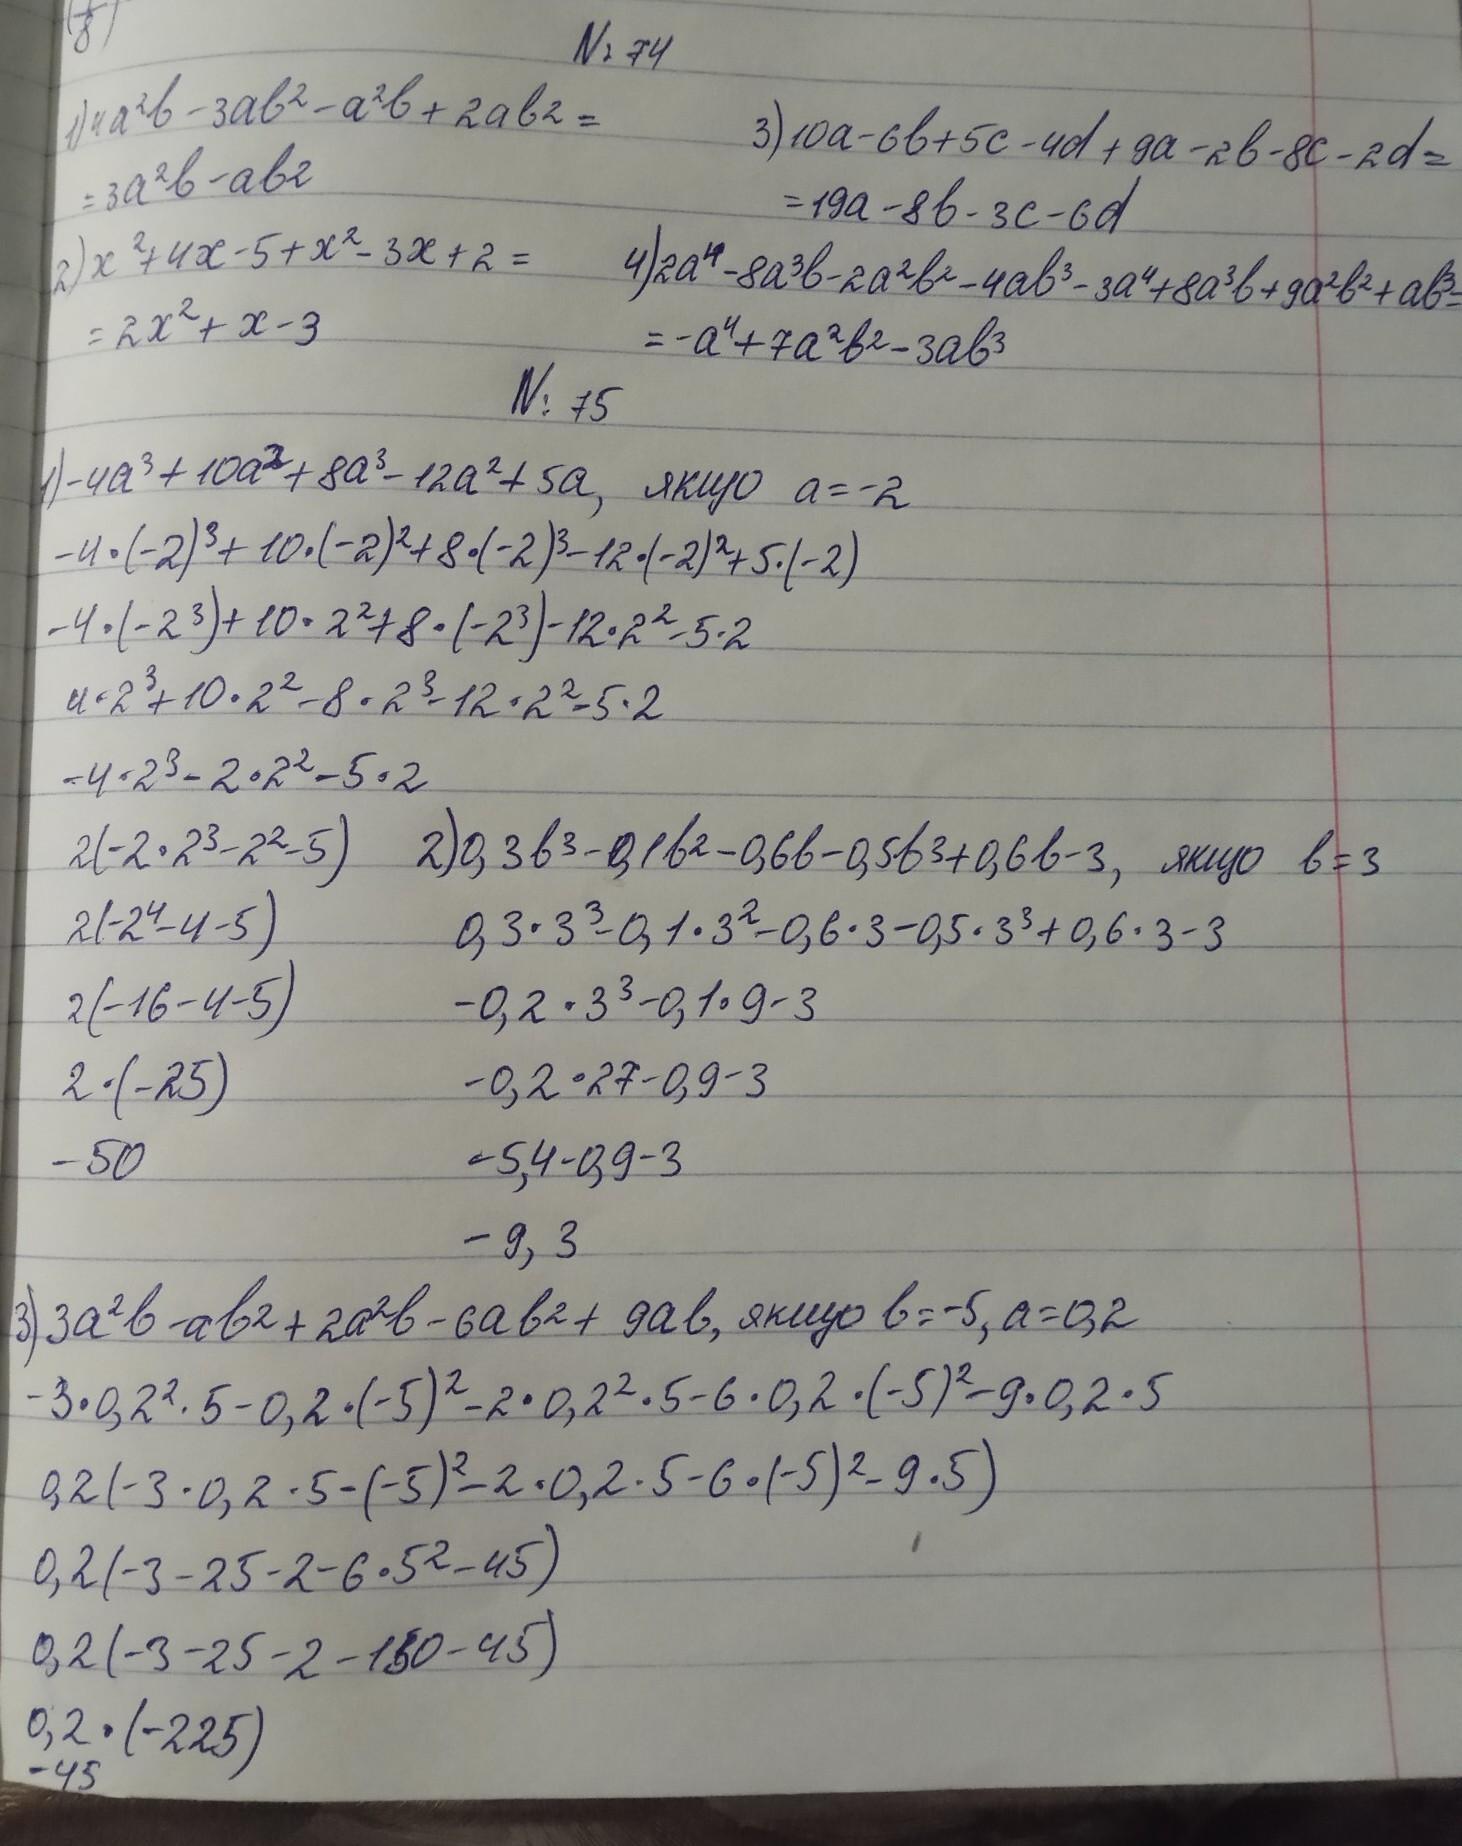 (1/8)
N: 74
1) 4a²b - 3ab² - a²b + 2ab² =
= 3a²b - ab²
3) 10a - 6b + 5c - 4d + 9a - 2b - 8c - 2d =
= 19a - 8b - 3c - 6d
2) x² + 4x - 5 + x² - 3x + 2 =
= 2x² + x - 3
4) 2a⁴ - 8a³b - 2a²b² - 4ab³ - 3a⁴ + 8a³b + 9a²b² + ab³ =
= -a⁴ + 7a²b² - 3ab³
N: 75
1) -4a³ + 10a² + 8a³ - 12a² + 5a, якщо a = -2
-4·(-2)³ + 10·(-2)² + 8·(-2)³ - 12·(-2)² + 5·(-2)
-4·(-2³) + 10·2² + 8·(-2³) - 12·2² - 5·2
4·2³ + 10·2² - 8·2³ - 12·2² - 5·2
-4·2³ - 2·2² - 5·2
2(-2·2³ - 2² - 5)
2(-2⁴ - 4 - 5)
2(-16 - 4 - 5)
2·(-25)
-50
2) 0,3b³ - 0,1b² - 0,6b - 0,5b³ + 0,6b - 3, якщо b = 3
0,3·3³ - 0,1·3² - 0,6·3 - 0,5·3³ + 0,6·3 - 3
-0,2·3³ - 0,1·9 - 3
-0,2·27 - 0,9 - 3
-5,4 - 0,9 - 3
-9,3
3) 3a²b - ab² + 2a²b - 6ab² + 9ab, якщо b = -5, a = 0,2
-3·0,2²·5 - 0,2·(-5)² - 2·0,2²·5 - 6·0,2·(-5)² - 9·0,2·5
0,2(-3·0,2·5 - (-5)² - 2·0,2·5 - 6·(-5)² - 9·5)
0,2(-3 - 25 - 2 - 6·5² - 45)
0,2(-3 - 25 - 2 - 150 - 45)
0,2·(-225)
-45